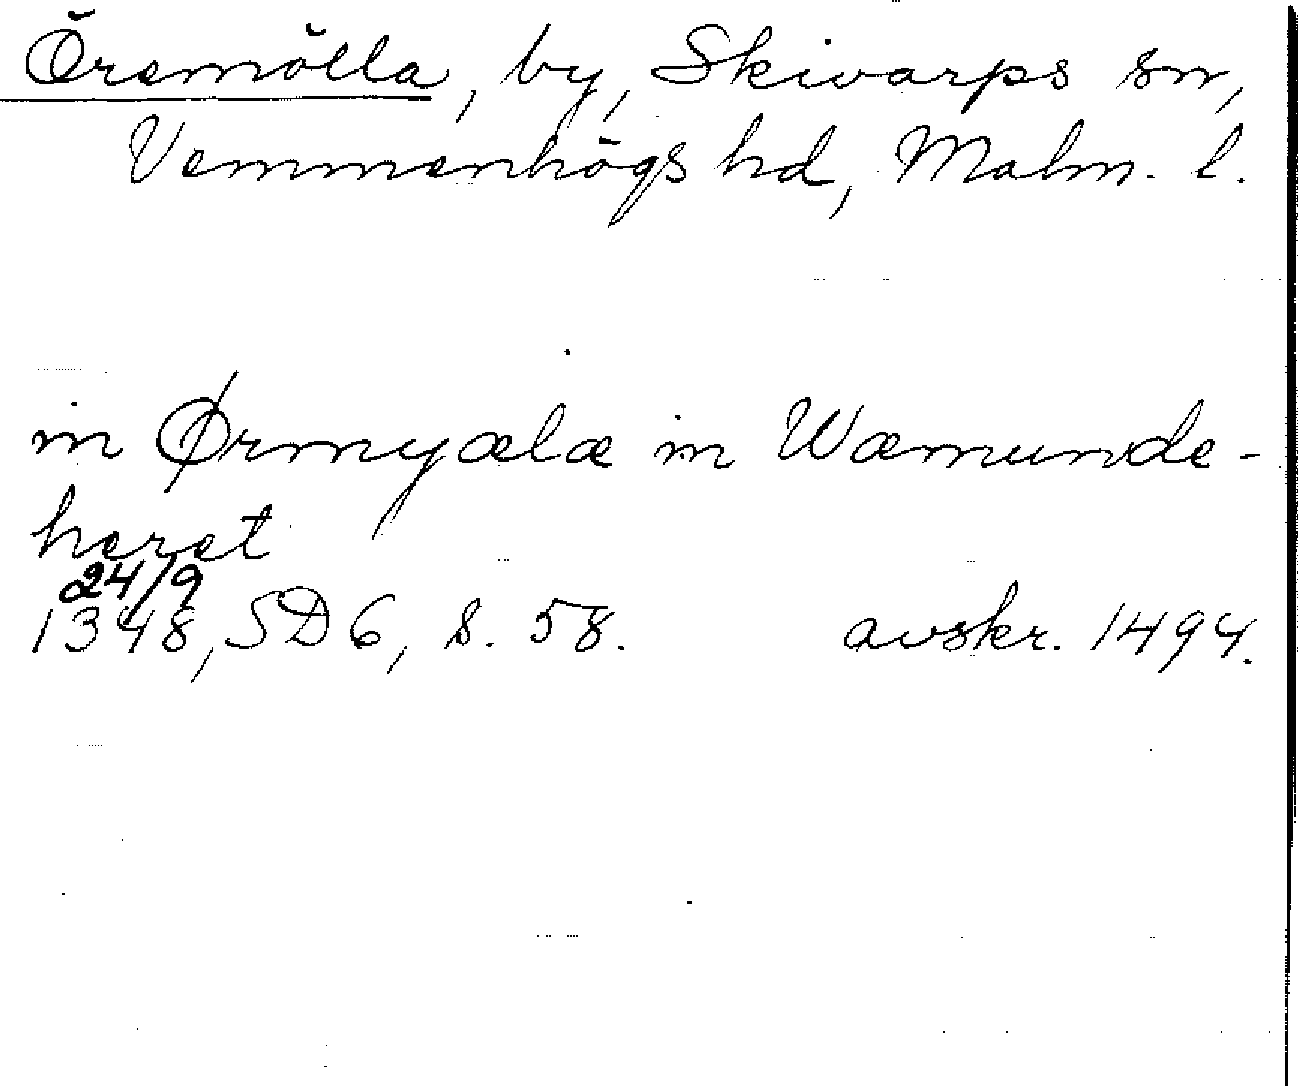 Öremölla, by, Skivarps sn,
Vemmenhögs hd, Malm. l.
in Ørmyælæ in Wæmunde-
heret
24/9
1348, SD 6, s. 58. avskr. 1494.